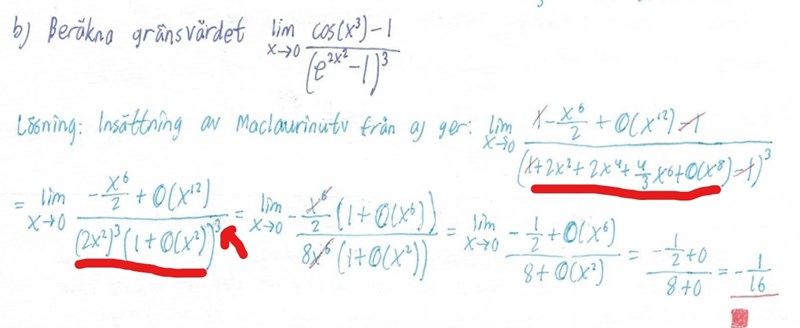 b) Beräkna gränsvärdet lim x→0 (cos(x³)-1)/(e^{2x²}-1)³
Lösning: Insättning av Maclaurinutv från a) ger: lim x→0 (1-x⁶/2+O(x¹²)-1)/(1+2x²+2x⁴+4/3 x⁶+O(x⁸)-1)³
= lim x→0 (-x⁶/2+O(x¹²))/((2x²)³(1+O(x²))³) = lim x→0 (-x⁶/2 (1+O(x⁶)))/(8x⁶(1+O(x²))) = lim x→0 (-1/2+O(x⁶))/(8+O(x²)) = (-1/2+0)/(8+0) = -1/16